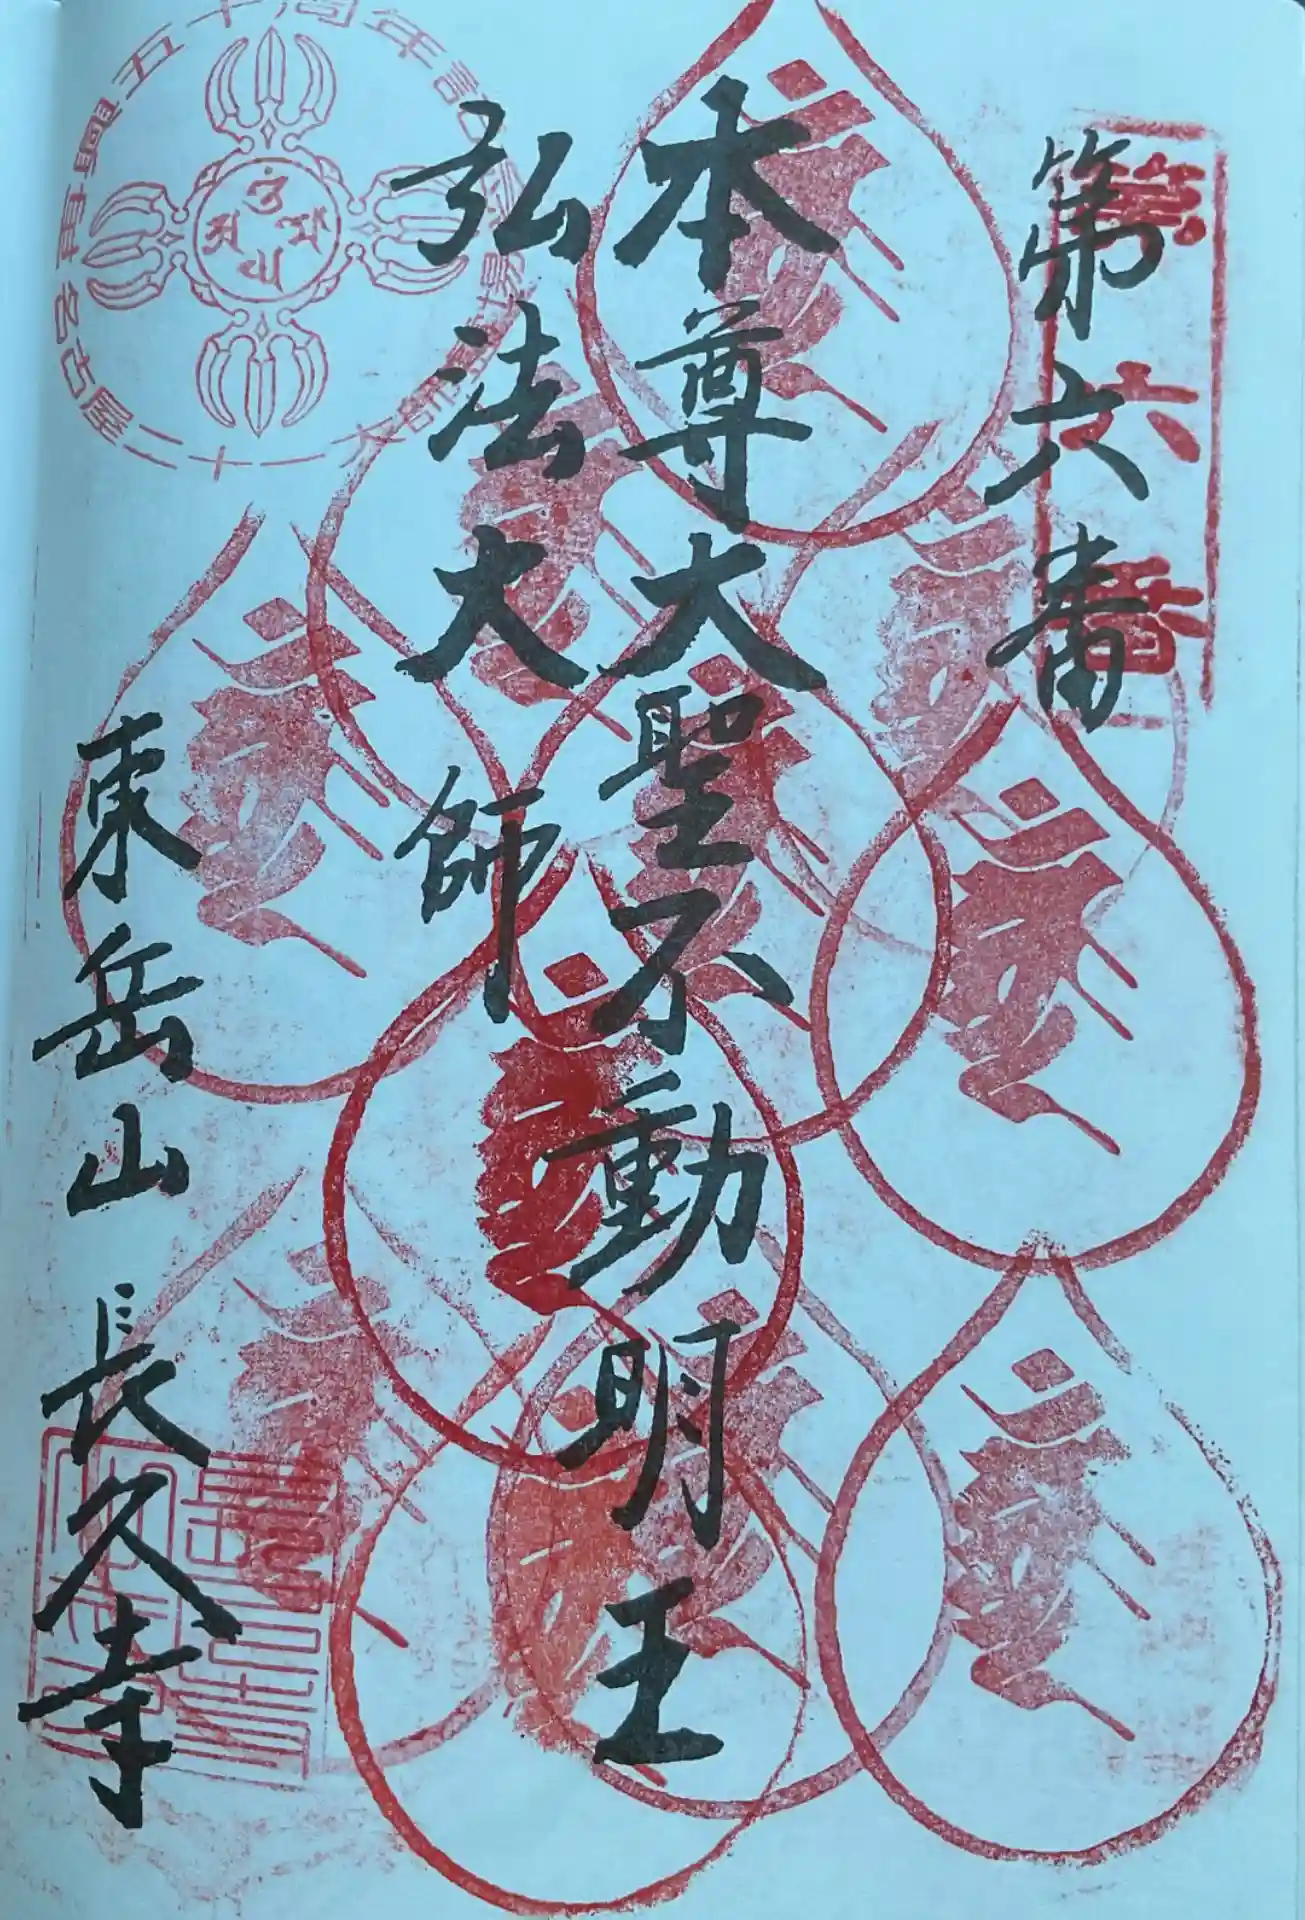 第六番
第六番
本尊大聖不動明王
弘法大師
東岳山 長久寺
五十周年記
名古屋二十一大師霊場